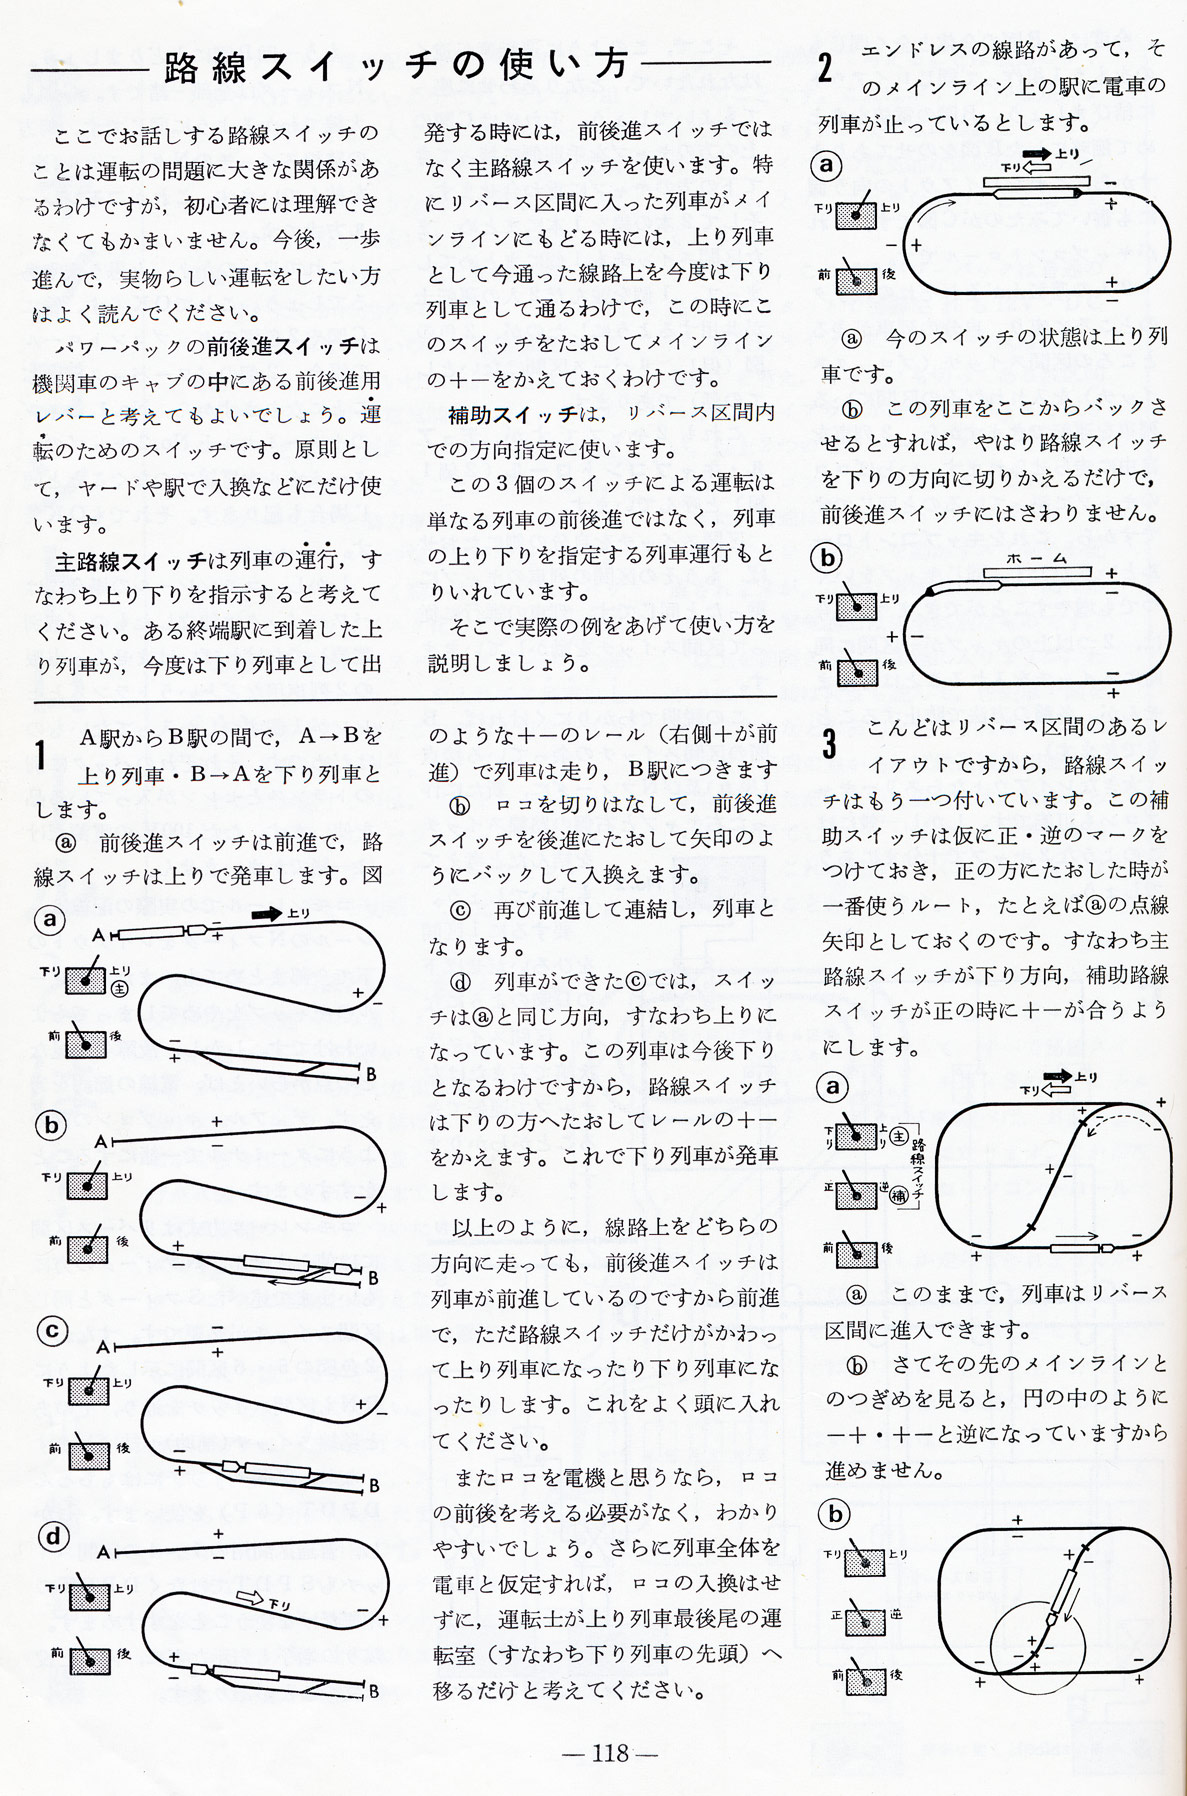 路線スイッチの使い方
ここでお話しする路線スイッチの
ことは運転の問題に大きな関係があ
るわけですが，初心者には理解でき
なくてもかまいません。今後，一歩
進んで，実物らしい運転をしたい方
はよく読んでください。
パワーパックの前後進スイッチは
機関車のキャブの中にある前後進用
レバーと考えてもよいでしょう。運
転のためのスイッチです。原則とし
て，ヤードや駅で入換などにだけ使
います。
主路線スイッチは列車の運行，す
なわち上り下りを指示すると考えて
ください。ある終端駅に到着した上
り列車が，今度は下り列車として出
発する時には，前後進スイッチでは
なく主路線スイッチを使います。特
にリバース区間に入った列車がメイ
ンラインにもどる時には，上り列車
として今通った線路上を今度は下り
列車として通るわけで，この時にこ
のスイッチをたおしてメインライン
の＋−をかえておくわけです。
補助スイッチは，リバース区間内
での方向指定に使います。
この３個のスイッチによる運転は
単なる列車の前後進ではなく，列車
の上り下りを指定する列車運行もと
りいれています。
そこで実際の例をあげて使い方を
説明しましょう。
1 A駅からB駅の間で，A→Bを
上り列車・B→Aを下り列車と
します。
ⓐ 前後進スイッチは前進で，路
線スイッチは上りで発車します。図
ⓐ
上り
A − ＋
下り 上り 主
＋ −
前 後
− ＋
B
ⓑ
A ＋ −
下り 上り
− ＋
前 後
＋ −
B
ⓒ
A − ＋
下り 上り
＋ −
前 後
− ＋
B
ⓓ
A ＋ −
下り 上り
下り
− ＋
前 後
＋ −
B
のような＋−のレール（右側＋が前
進）で列車は走り，B駅につきます
ⓑ ロコを切りはなして，前後進
スイッチを後進にたおして矢印のよ
うにバックして入換えます。
ⓒ 再び前進して連結し，列車と
なります。
ⓓ 列車ができたⓒでは，スイッ
チはⓐと同じ方向，すなわち上りに
なっています。この列車は今後下り
となるわけですから，路線スイッチ
は下りの方へたおしてレールの＋−
をかえます。これで下り列車が発車
します。
以上のように，線路上をどちらの
方向に走っても，前後進スイッチは
列車が前進しているのですから前進
で，ただ路線スイッチだけがかわっ
て上り列車になったり下り列車にな
ったりします。これをよく頭に入れ
てください。
またロコを電機と思うなら，ロコ
の前後を考える必要がなく，わかり
やすいでしょう。さらに列車全体を
電車と仮定すれば，ロコの入換はせ
ずに，運転士が上り列車最後尾の運
転室（すなわち下り列車の先頭）へ
移るだけと考えてください。
2 エンドレスの線路があって，そ
のメインライン上の駅に電車の
列車が止っているとします。
ⓐ
上り
下り
下り 上り
− ＋
− ＋
前 後
＋ −
ⓐ 今のスイッチの状態は上り列
車です。
ⓑ この列車をここからバックさ
せるとすれば，やはり路線スイッチ
を下りの方向に切りかえるだけで，
前後進スイッチにはさわりません。
ⓑ
ホーム
＋ −
下り 上り
＋ −
前 後
− ＋
3 こんどはリバース区間のあるレ
イアウトですから，路線スイッ
チはもう一つ付いています。この補
助スイッチは仮に正・逆のマークを
つけておき，正の方にたおした時が
一番使うルート，たとえばⓐの点線
矢印としておくのです。すなわち主
路線スイッチが下り方向，補助路線
スイッチが正の時に＋−が合うよう
にします。
ⓐ
上り
下り
− ＋
＋ − −
下り 上り 主
路線スイッチ
正 逆 補
＋ −
前 後
− ＋
− ＋
ⓐ このままで，列車はリバース
区間に進入できます。
ⓑ さてその先のメインラインと
のつぎめを見ると，円の中のように
−＋・＋−と逆になっていますから
進めません。
ⓑ
＋ −
下り 上り
＋ −
正 逆
＋ −
− ＋
前 後
− ＋
− ＋
— 118 —